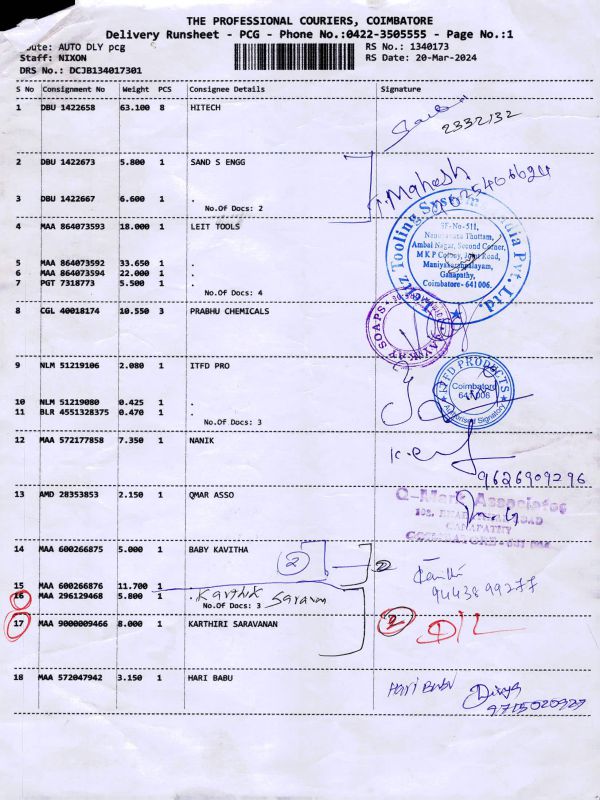 THE PROFESSIONAL COURIERS, COIMBATORE
Delivery Runsheet - PCG - Phone No.:0422-3505555 - Page No.:1
oute: AUTO DLY pcg RS No.: 1340173
Staff: NIXON RS Date: 20-Mar-2024
DRS No.: DCJB134017301
S No Consignment No Weight PCS Consignee Details Signature
1 DBU 1422658 63.100 8 HITECH
2332132
2 DBU 1422673 5.800 1 SAND S ENGG
Mahesh
3 DBU 1422667 6.600 1 .
No.Of Docs: 2
4 MAA 864073593 18.000 1 LEIT TOOLS
5 MAA 864073592 33.650 1 .
6 MAA 864073594 22.000 1 .
7 PGT 7318773 5.500 1 .
No.Of Docs: 4
Tooling System India Pvt. Ltd.
SF-No-511,
Thottam,
Ambal Nagar, Second Corner,
M K P Colony, Road,
Maniyakarampalayam,
Ganapathy,
Coimbatore - 641006.
8 CGL 40018174 10.550 3 PRABHU CHEMICALS
SOAPS
9 NLM 51219106 2.080 1 ITFD PRO
10 NLM 51219080 0.425 1 .
11 BLR 4551328375 0.470 1 .
No.Of Docs: 3
ITFD PRODUCTS
Coimbatore
641 006
Authorised Signatory
12 MAA 572177858 7.350 1 NANIK
9626909296
13 AMD 28353853 2.150 1 QMAR ASSO
Q-Mark Associates
GANAPATHY
14 MAA 600266875 5.000 1 BABY KAVITHA
2 2
15 MAA 600266876 11.700 1
16 MAA 296129468 5.800 1 . Karthik Saravan
No.Of Docs: 3
9443899277
17 MAA 9000009466 8.000 1 KARTHIRI SARAVANAN
2 D/L
18 MAA 572047942 3.150 1 HARI BABU
Hari Babu Divya
9715020927